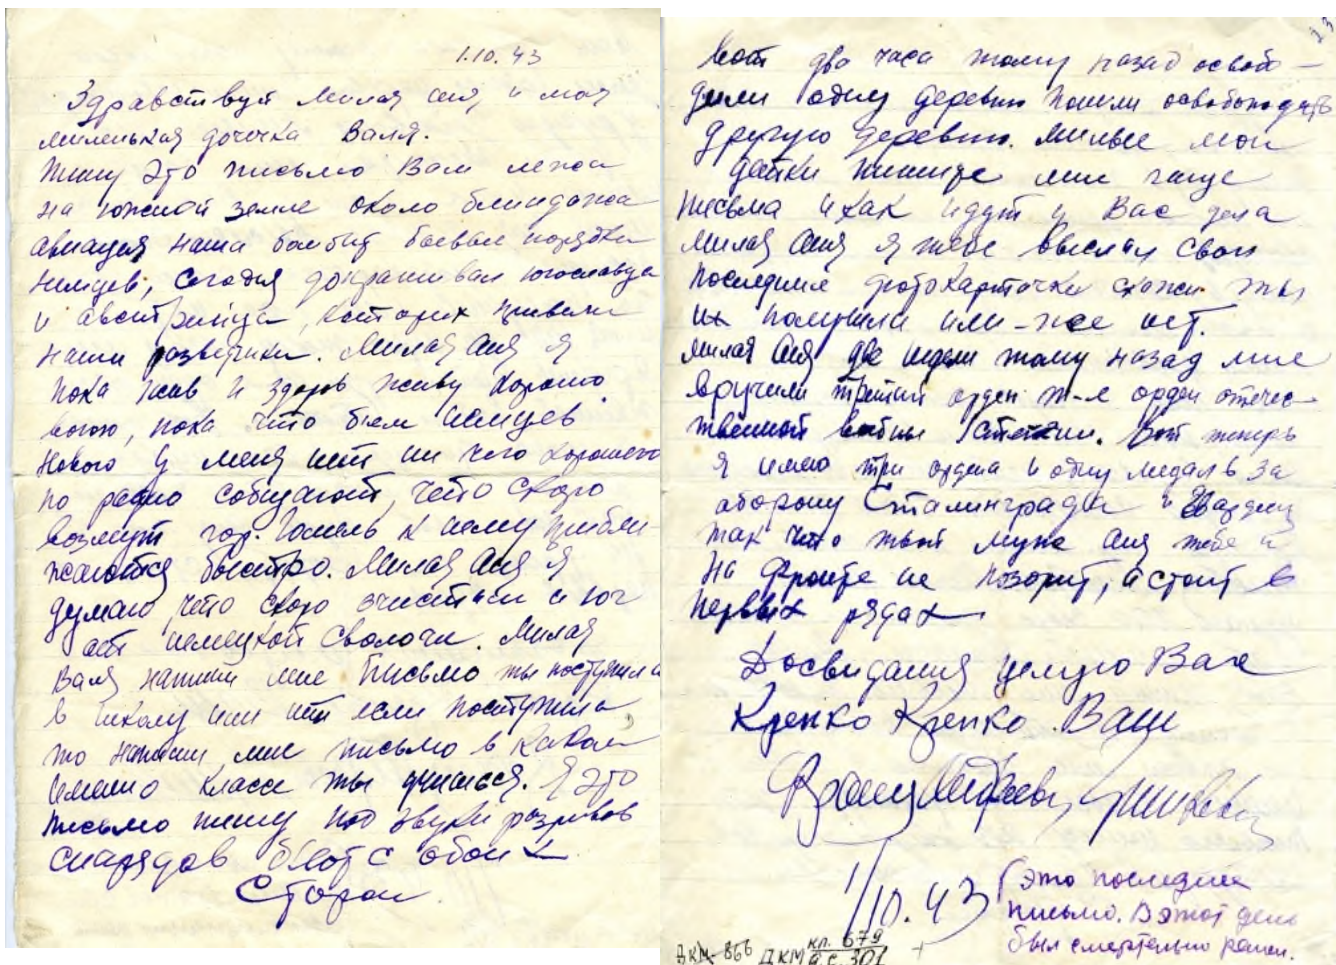 1.10.43
Здравствуй милая Аня, и моя
миленькая дочичка Валя.
Пишу это письмо Вам лежа
на южной земле около блиндажа
авиация наша бомбит боевые порядки
немцев, Сегодня допрашивал югославца
и австрийца, которих привели
наши развечики. Милая Аня я
пока жив и здоров живу хорошо
воюю, пока что бьем немцев
Нового у меня нет ни чего хорошего
по радио собщают, что скоро
возмут гор. Гомель к нему прибли
жаются быстро. Милая Аня я
думаю, что скоро очистим и юг
от немецкой сволочи. Милая
Валя напиши мне письмо ты поступила
в школу или нет если поступила
то напиши мне письмо в каком
имено классе ты учишся. Я это
письмо пишу под звуки разривов
снарядов бьют с обоих
Сторон.
23
Вот два часа тому назад освобо-
дили одну деревню пошли освобождать
другую деревню. Милые мои
детки пишите мне чаще
письма и как идут у Вас дела
Милая Аня я тебе выслал свои
последние фотокарточки скажи ты
их получила или-же нет.
Милая Аня две недели тому назад мне
вручили третий орден т-е орден отечес-
твенной войны степени. Вот теперь
я имею три ордена и одну медаль за
оборону Сталинграда и Гвардии
так что твой муж Аня тебе и
на фронте не позорит, а стоит в
первых рядах
Досвидания целую Вас
Крепко Крепко. Ваш
1/10.43
Это последнее
письмо. В этот день
был смертельно ранен.
ДКМ-866 ДКМ кп. 679
о.с. 301